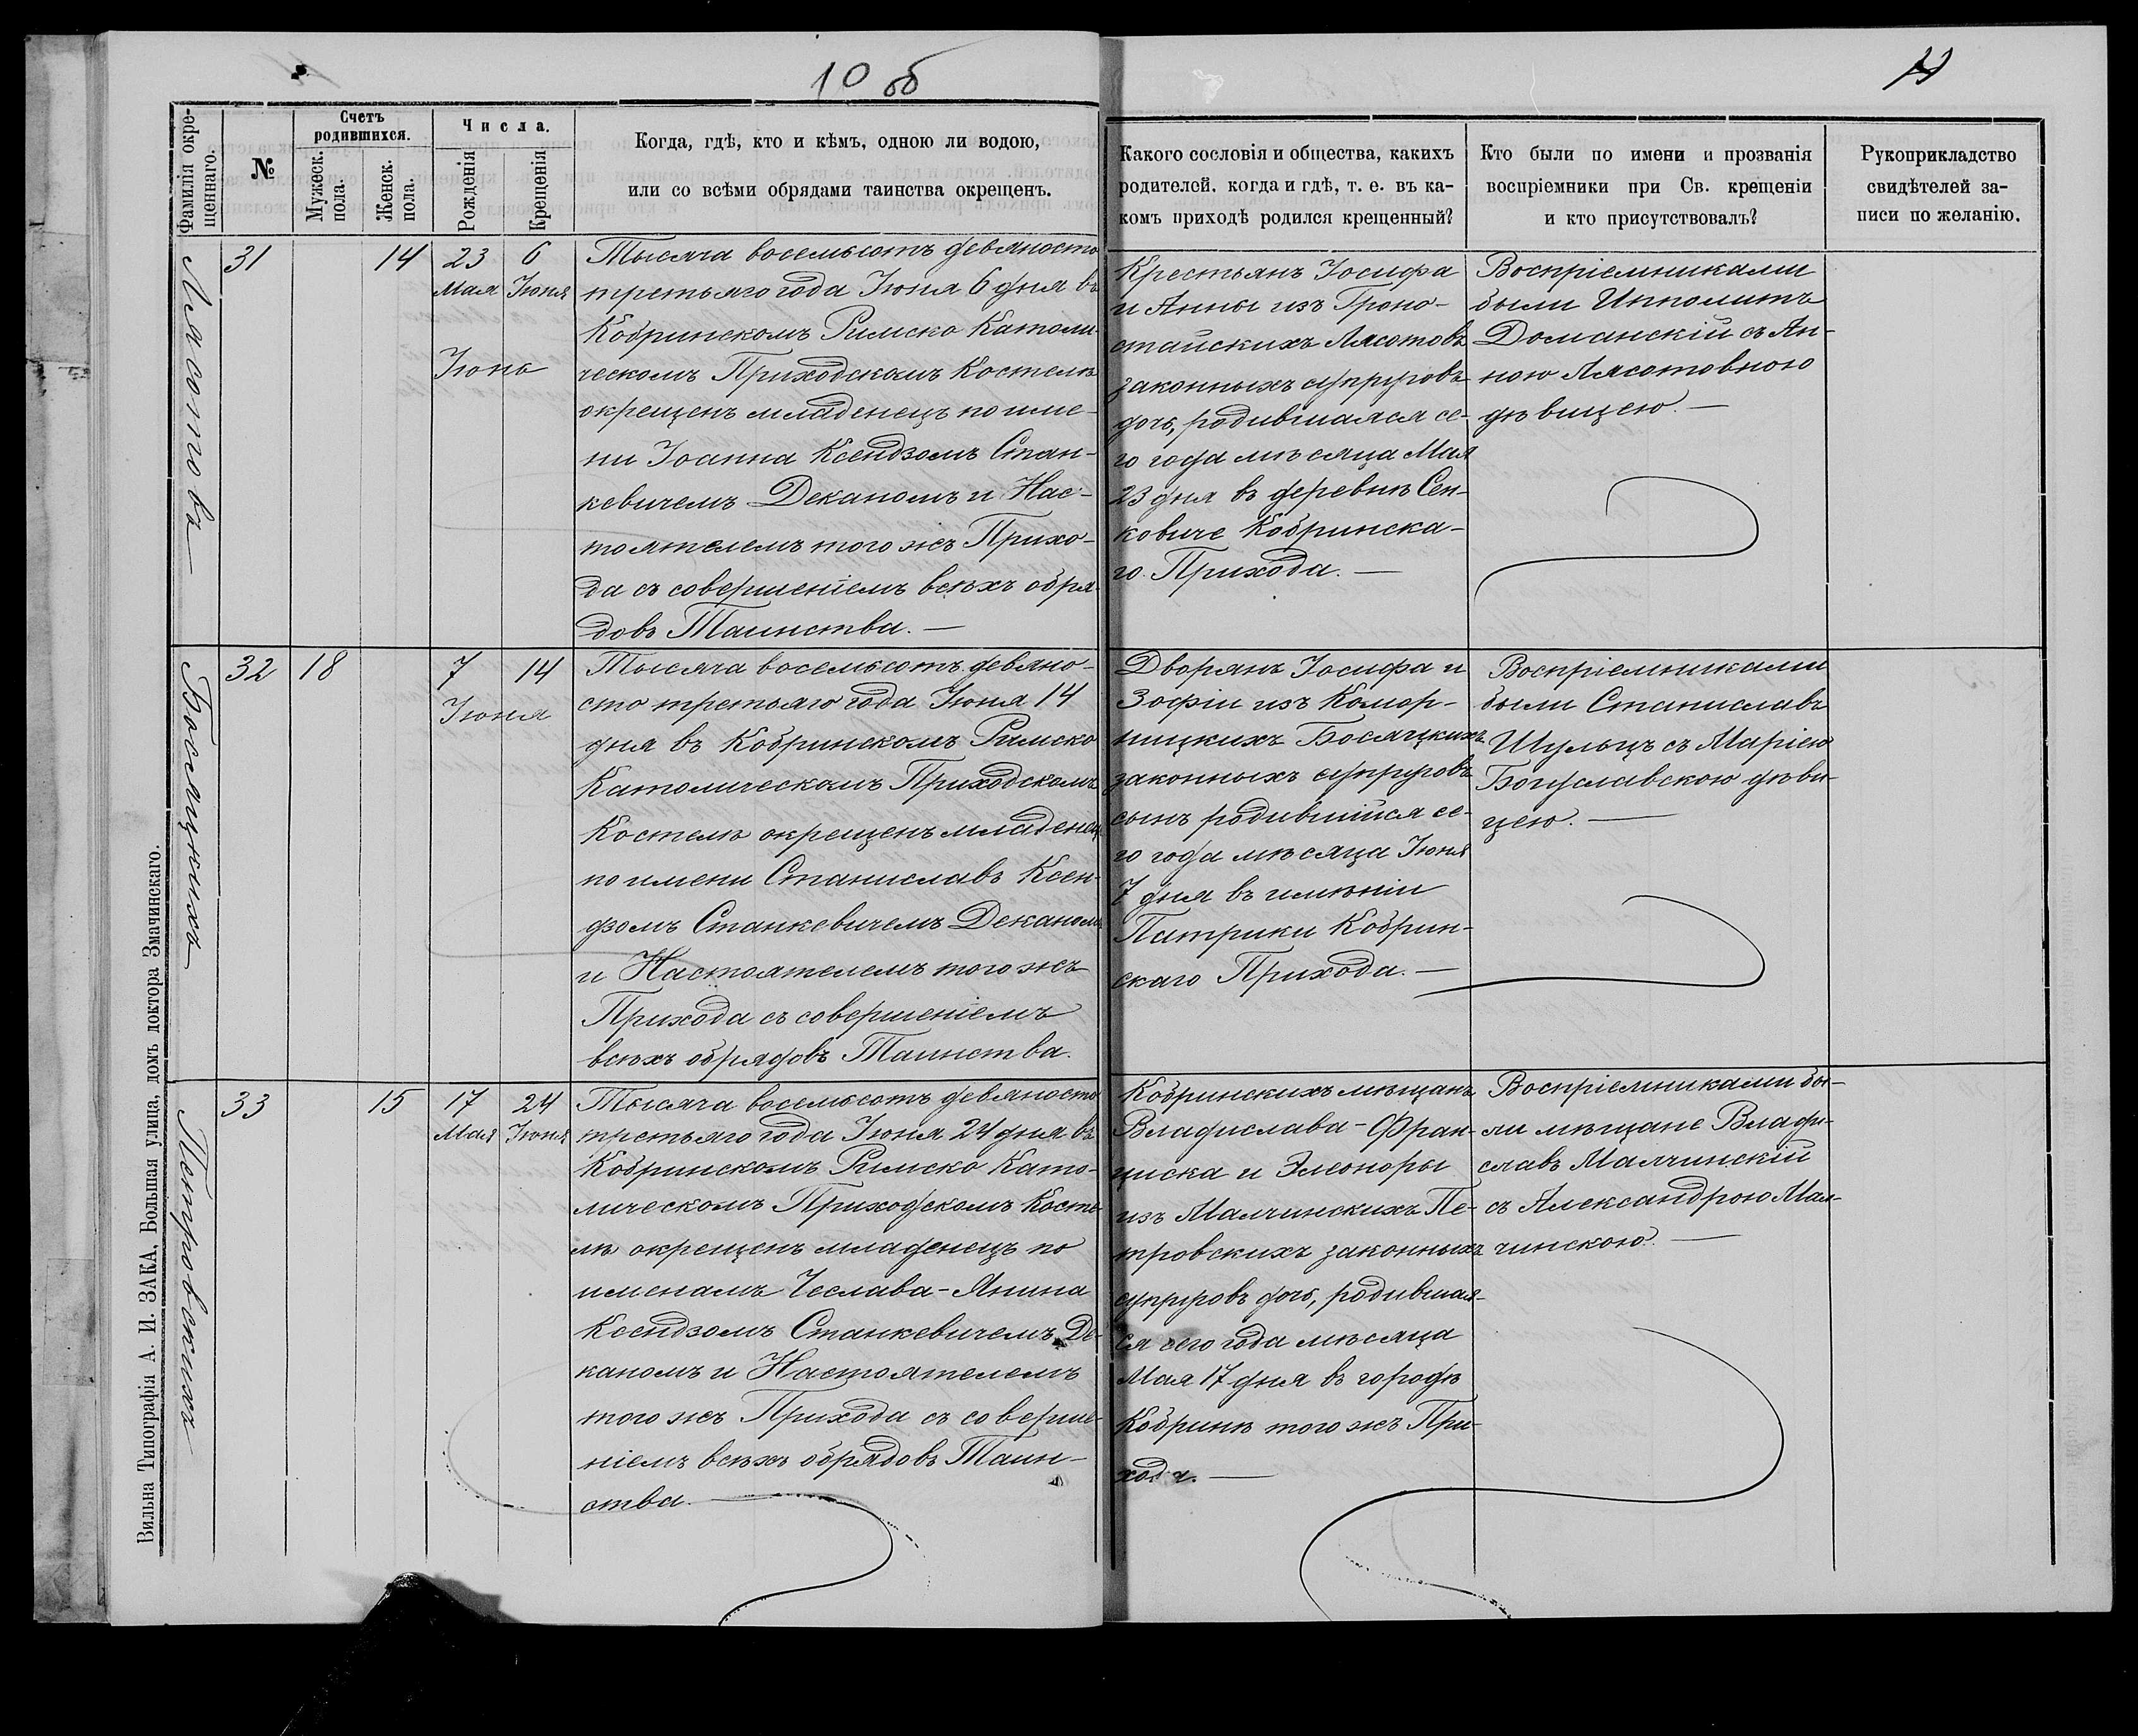 10 об
11
Фамилія окре-
щеннаго.
№
Счетъ
родившихся.
Мужеск.
пола.
Женск.
пола.
Числа.
Рожденія
Крещенія
Когда, гдѣ, кто и кѣмъ, одною ли водою,
или со всѣми обрядами таинства окрещенъ.
Какого сословія и общества, какихъ
родителей, когда и гдѣ, т. е. въ ка-
комъ приходѣ родился крещенный?
Кто были по имени и прозванія
воспріемники при Св. крещеніи
и кто присутствовалъ?
Рукоприкладство
свидѣтелей за-
писи по желанію.
Лясотовъ
31
14
23
Мая
6
Іюня
Іюнь
Тысяча восемьсотъ девяносто
третьяго года Іюня 6 дня въ
Кобринскомъ Римско Католи-
ческомъ Приходскомъ Костелѣ
окрещенъ младенецъ по име-
ни Іоанна Ксендзомъ Стан-
кевичемъ Деканомъ и Нас-
тоятелемъ того жъ Прихо-
да съ совершеніемъ всѣхъ обря-
довъ Таинства. —
Крестьянъ Іосифа
и Анны изъ Гроно-
стайскихъ Лясотовъ
законныхъ супруговъ
дочь, родившаяся се-
го года мѣсяца Мая
23 дня въ деревнѣ Сен-
ковиче Кобринска-
го Прихода. —
Воспріемниками
были Ипполитъ
Доманскій съ Ан-
ною Лясотовною
дѣвицею. —
Босяцкихъ
32
18
7
Іюня
14
Тысяча восемьсотъ девяно-
сто третьяго года Іюня 14
дня въ Кобринскомъ Римско
Католическомъ Приходскомъ
Костелѣ окрещенъ младенец
по имени Станиславъ Ксен-
дзомъ Станкевичемъ Деканомъ
и Настоятелемъ того жъ
Прихода съ совершеніемъ
всѣхъ обрядовъ Таинства.
Дворянъ Іосифа и
Зофіи изъ Комор-
ницкихъ Босяцкихъ
законныхъ супруговъ
сынъ родившійся се-
го года мѣсяца Іюня
7 дня въ имѣніи
Патрики Кобрин-
скаго Прихода. —
Воспріемниками
были Станиславъ
Шульцъ съ Маріею
Богуславскою дѣви-
цею. —
Петровскихъ
33
15
17
Мая
24
Іюня
Тысяча восемьсотъ девяносто
третьяго года Іюня 24 дня въ
Кобринскомъ Римско Като-
лическомъ Приходскомъ Косте-
лѣ окрещенъ младенецъ по
именамъ Чеслава-Янина
Ксендзомъ Станкевичемъ Де-
каномъ и Настоятелемъ
того жъ Прихода съ соверше-
ніемъ всѣхъ обрядовъ Таин-
ства. —
Кобринскихъ мѣщанъ
Владислава-Фран-
циска и Элеоноры
изъ Малчинскихъ Пе-
тровскихъ законныхъ
супруговъ дочь, родившая-
ся сего года мѣсяца
Мая 17 дня въ городѣ
Кобринѣ того жъ При-
хода. —
Воспріемниками бы-
ли мѣщане Влади-
славъ Малчинскій
съ Александрою Мал-
чинскою. —
Вильна Типографія А. И. ЗАКА, Большая улица, домъ доктора Змачинскаго.